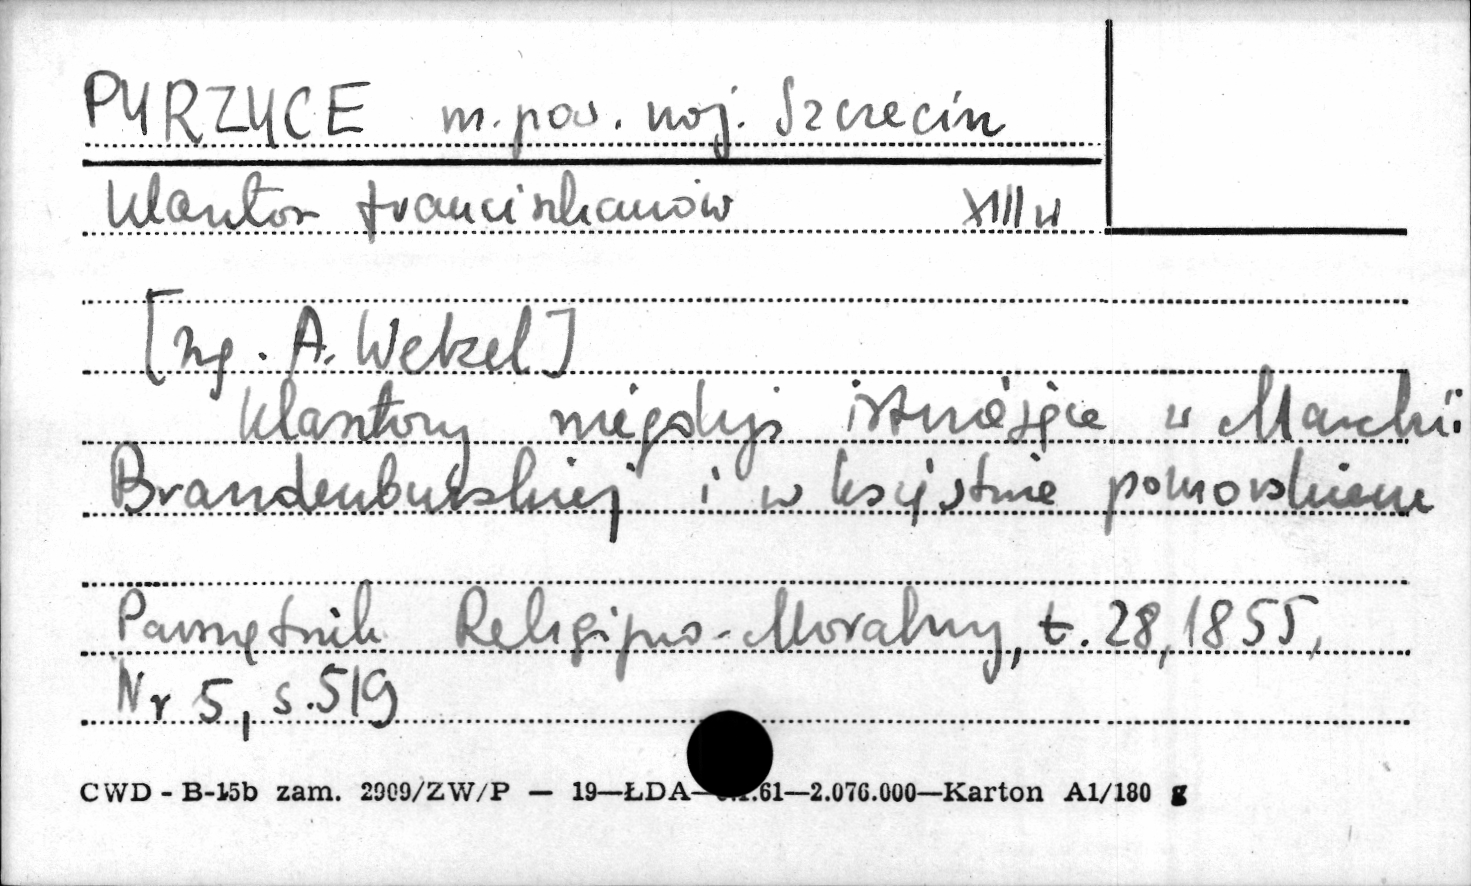 PYRZYCE m. pow. woj. Szczecin
Klasztor franciszkanów XIII w
[Ng. A. Wetzel]
Klasztory niegdyś istniejące w Marchii
Brandenburskiej i w księstwie pomorskiem
Pamiętnik Religijno-Moralny, t. 28, 1855,
Nr 5, s. 519
CWD - B-15b zam. 2909/ZW/P — 19—ŁDA— .61—2.076.000—Karton A1/180 g